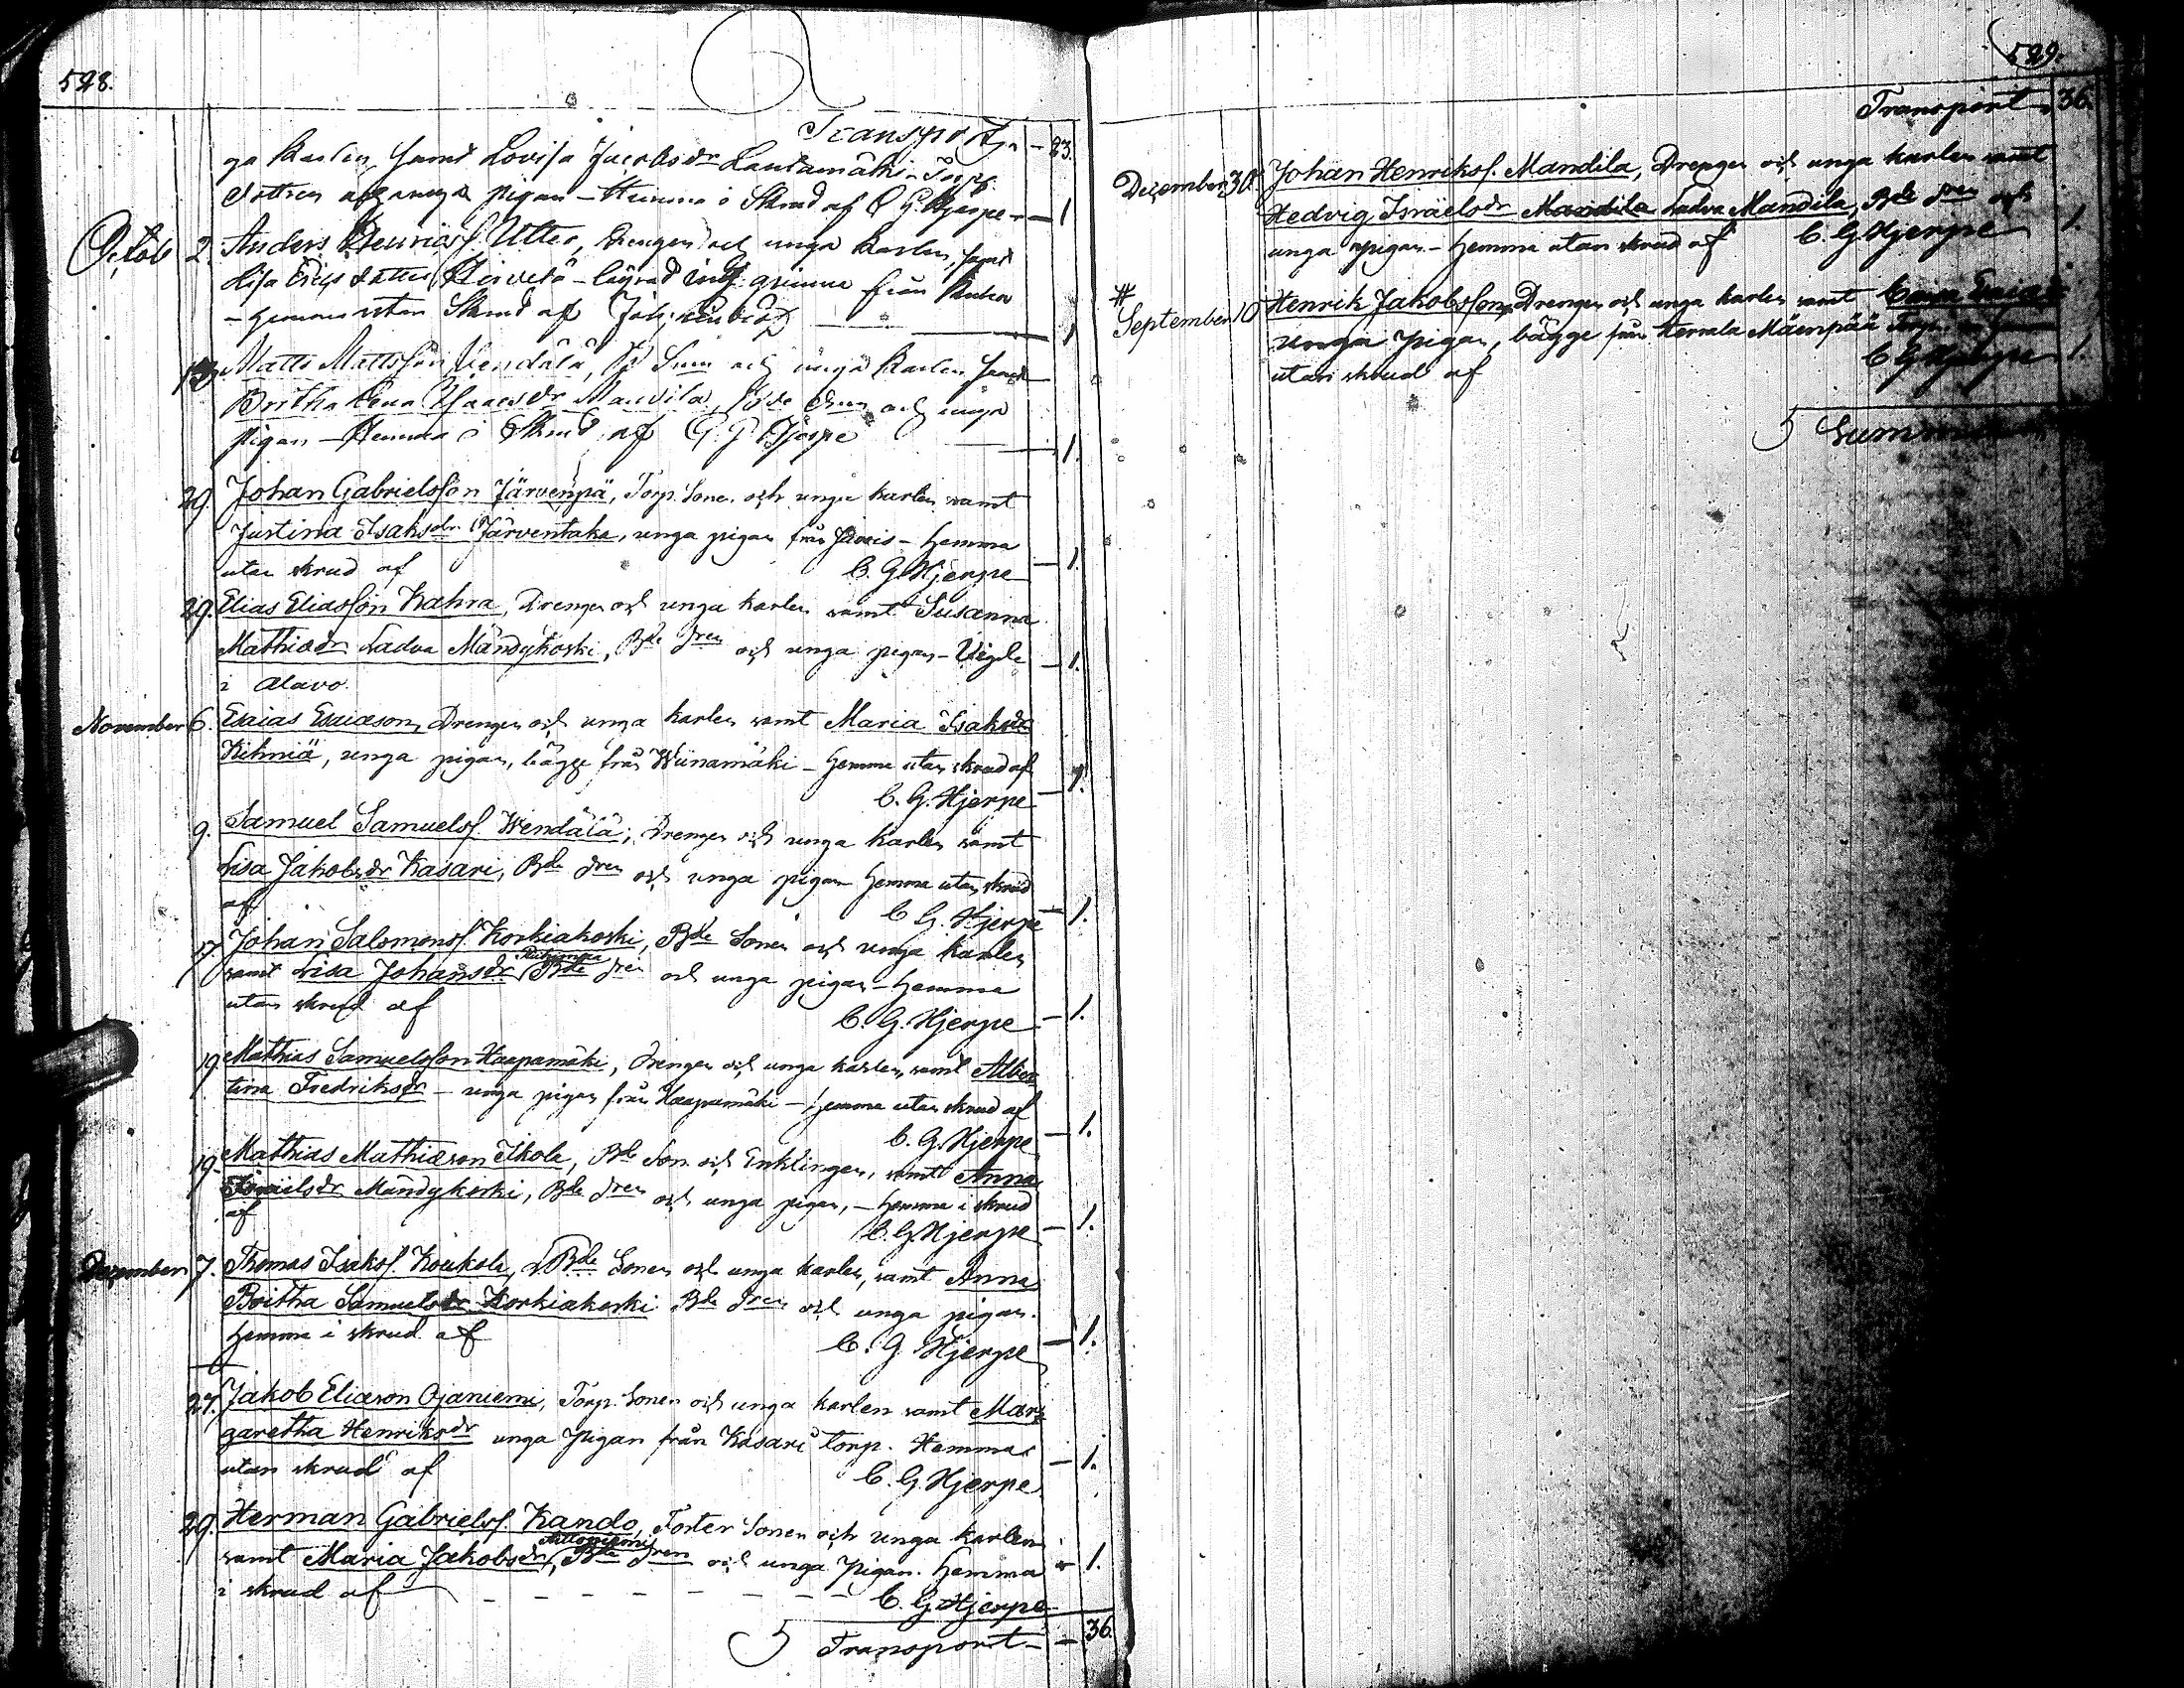 528.
Transport — 23.
ga Karlen, samt Lovisa Jacobsdr Lautamäki Torp.
Dottren och unga pigan — Hemma i Skrud af C G. Hjerpe — 1
Octob 2. Anders Henricss. Utter, Drengen och unga Karlen, samt
Lisa Erics dotter Hirvelä — från
— Hemma utan Skrud af Joh. — 1
Matts Mattsson Wendälä, Bd. Sonen och unga Karlen samt
Britha Lena Isaacsdr Mandila, Bde dren och unga
pigan — Hemma i Skrud af C. G. Hjerpe — 1.
29. Johan Gabrielsson Järvenpä, Torp. Sonen och unga karlen samt
Justina Isaksdr Järventaka, unga pigan från — Hemma
utan skrud af C. G. Hjerpe — 1.
29. Elias Eliasson Kahra, Drengen och unga karlen samt Susanna
Mathiædr Ladva Mändykoski, Bde dren och unga pigan — Vigde — 1.
i Alavo.
November 6. Esaias Esaiæson, Drengen och unga karlen samt Maria Isaksdr
Kihniä, unga pigan, bägge från Wiinamäki — Hemma utan skrud af
C. G. Hjerpe — 1.
9. Samuel Samuelss. Wendälä, Drengen och unga karlen samt
Lisa Jakobsdr Kasari, Bde dren och unga pigan Hemma utan skrud
af C. G. Hjerpe — 1.
17. Johan Salomonss. Korkiakoski, Bde Sonen och unga karlen
samt Lisa Johansdr Bde dren och unga pigan — Hemma
utan skrud af C. G. Hjerpe — 1.
19. Mathias Samuelsson Haapamäki, Drengen och unga karlen, samt Alber-
tina Fredriksdr — unga pigan från Haapamäki — Hemma utan skrud af
C. G. Hjerpe — 1.
19. Mathias Mathiæson Ikola, Bde Son och Enklingen, samt Anna
Israelsdr Mändykoski, Bde dren och unga pigan, — Hemma i skrud
af C. G. Hjerpe — 1.
December 7. Thomas Isakss. Koukola, Bde Sonen och unga karlen, samt Anna
Britha Samuelsdr Korkiakoski Bde dren och unga pigan.
Hemma i skrud af C. G. Hjerpe — 1.
27. Jakob Eliæson Ojaniemi, Torp. Sonen och unga karlen samt Mar-
garetha Henriksdr unga Pigan från Kasari torp. Hemma
utan skrud af C. G. Hjerpe — 1.
29. Herman Gabrielss. Kando, Foster Sonen och unga karlen
samt Maria Jakobsdr, Bde dren och unga Pigan. Hemma — 1.
i skrud af C. G. Hjerpe
Transport — 36.
529.
Transport 36.
December 30. Johan Henrikss. Mandila, Drengen och unga karlen samt
Hedvig Israelsdr Ladva Mandila, Bde dren och
unga pigan — Hemma utan skrud af C. G. Hjerpe 1.
#
September 10 Henrik Jakobsson, Drengen och unga karlen samt
unga pigan, bägge från Mäenpää
utan skrud af C. G. Hjerpe 1.
Summa